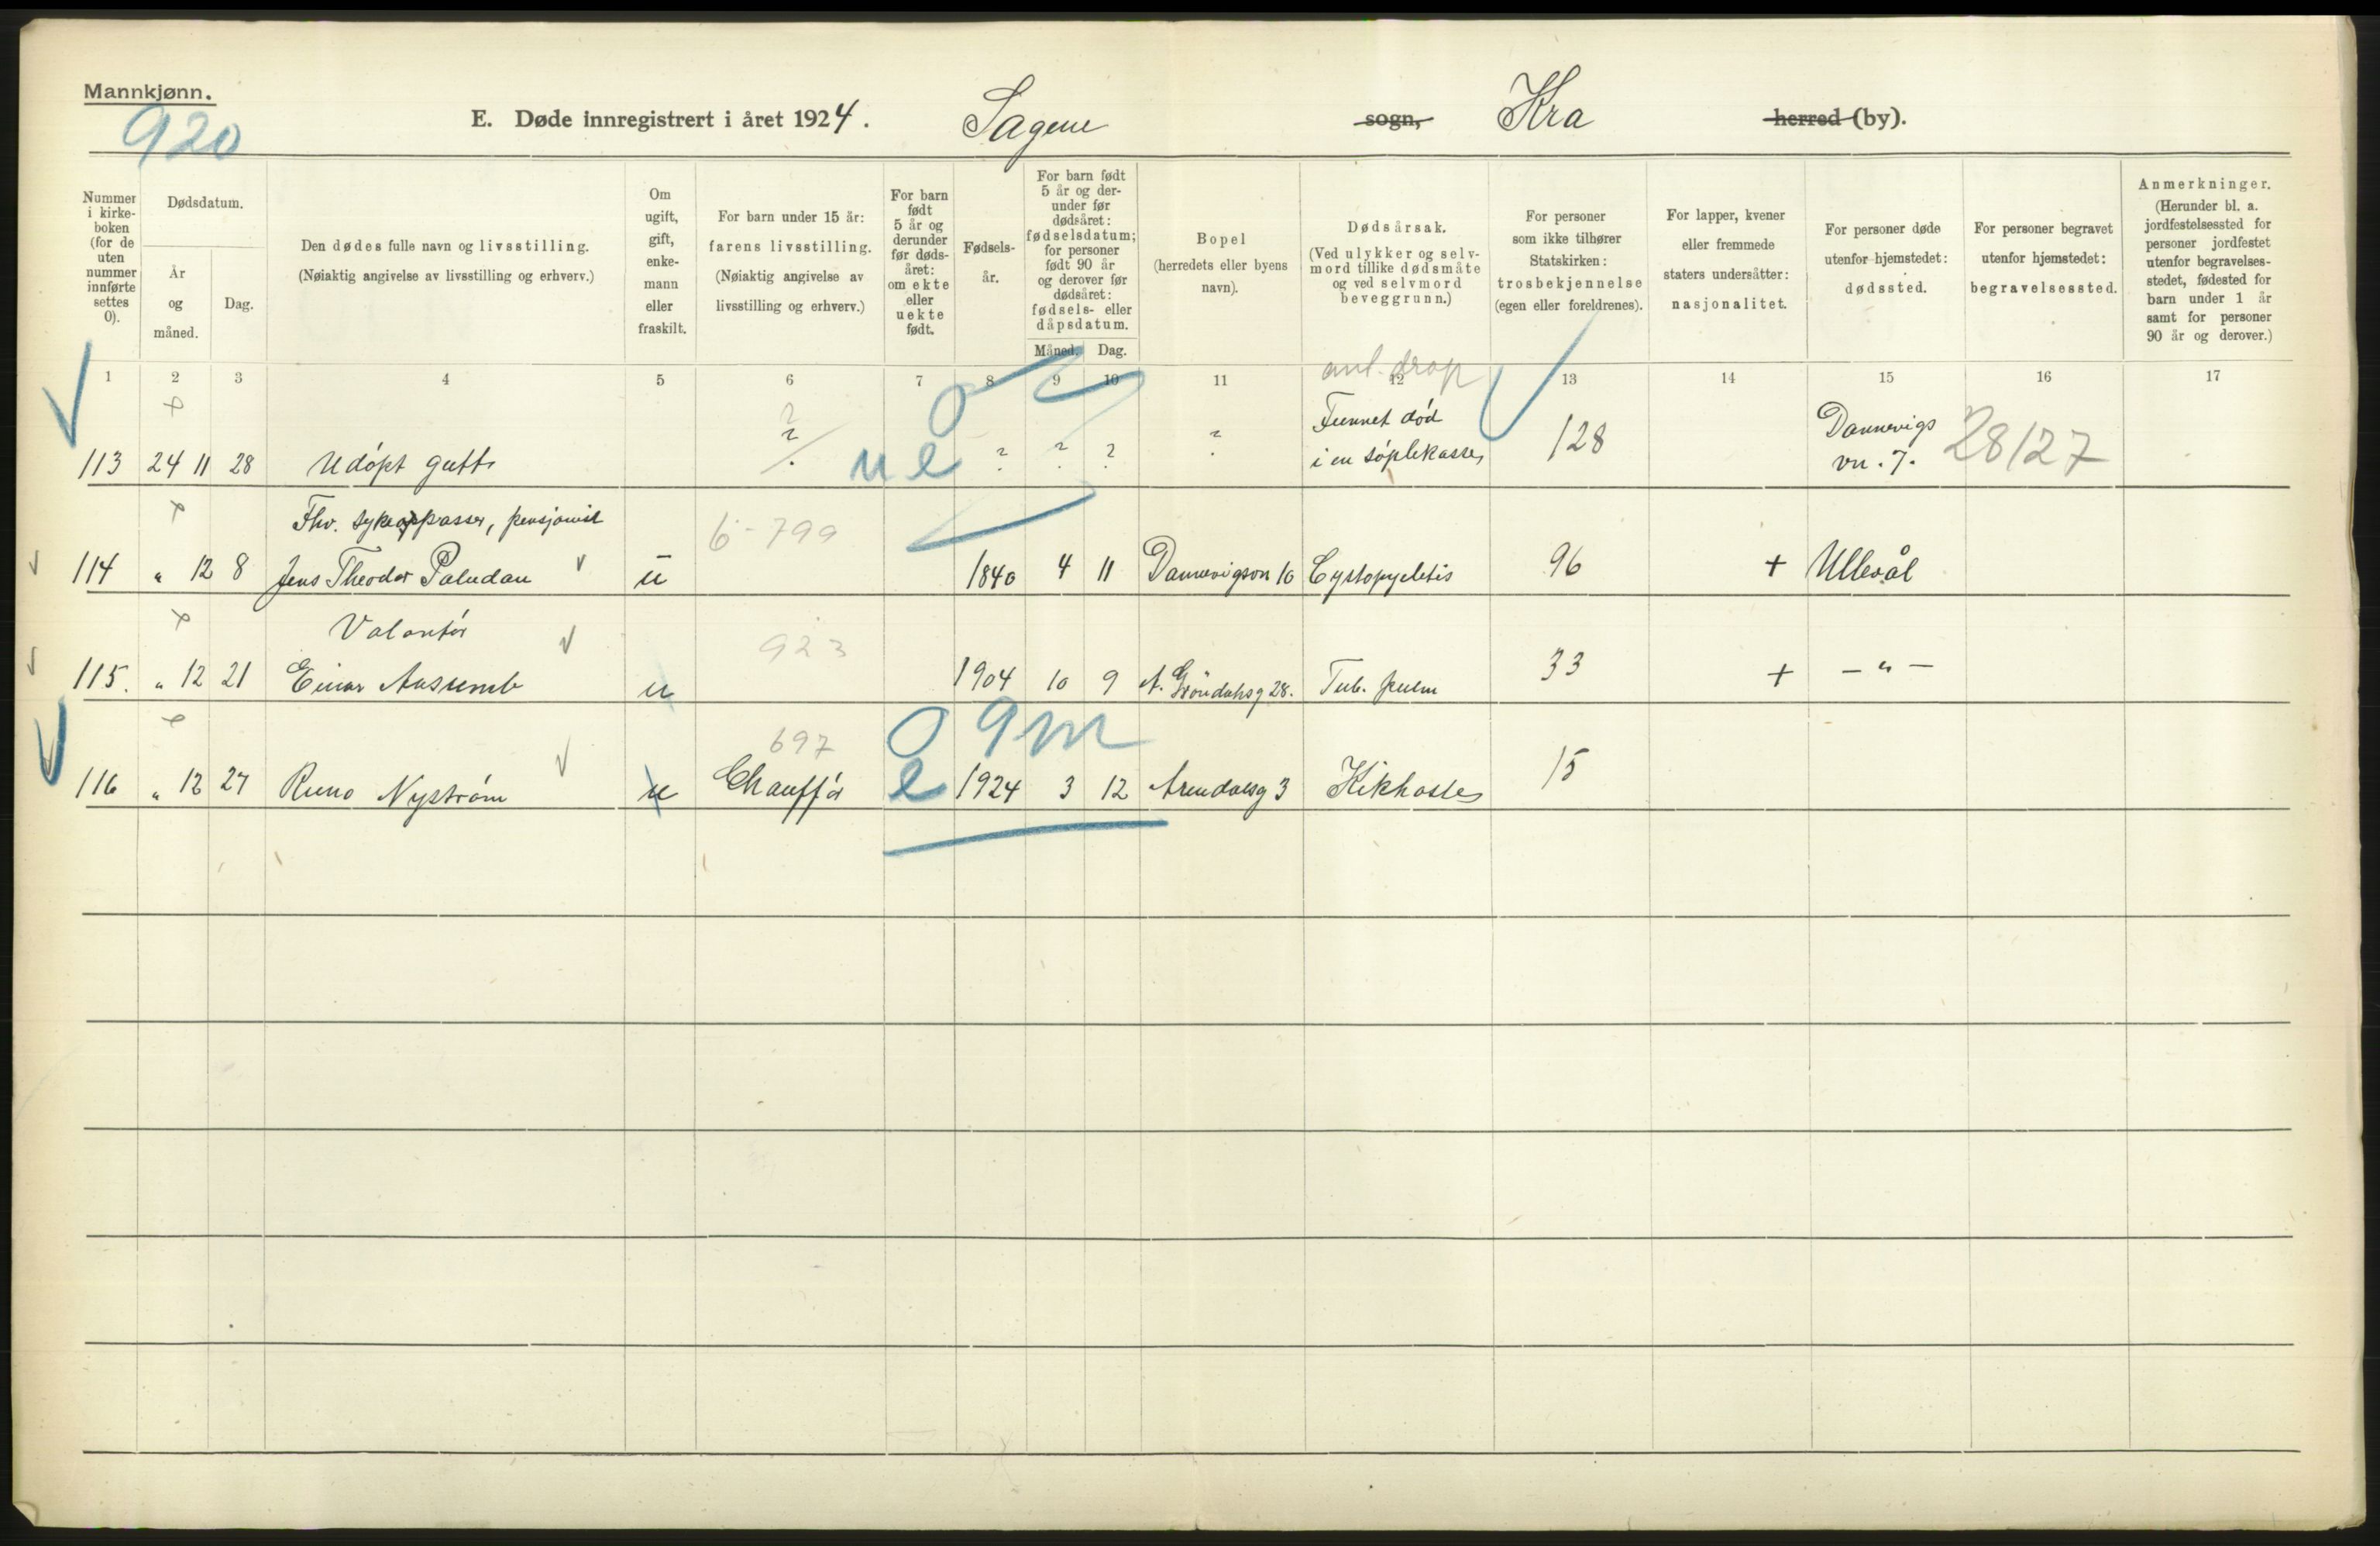 Mannkjønn.
920
E. Døde innregistrert i året 1924. Sagene sogn, Kra herred (by).
Nummer i kirke- boken (for de uten nummer innførte settes 0).
Dødsdatum.
År og måned.
Dag.
Den dødes fulle navn og livsstilling.
(Nøiaktig angivelse av livsstilling og erhverv.)
Om ugift, gift, enke- mann eller fraskilt.
For barn under 15 år:
farens livsstilling.
(Nøiaktig angivelse av
livsstilling og erhverv.)
For barn født 5 år og derunder før døds- året: om ekte eller uekte født.
Fødsels- år.
For barn født 5 år og der- under før dødsåret: fødselsdatum; for personer født 90 år og derover før dødsåret: fødsels- eller dåpsdatum.
Måned. Dag.
Bopel
(herredets eller byens
navn).
Dødsårsak.
(Ved ulykker og selv-
mord tillike dødsmåte
og ved selvmord
beveggrunn.)
For personer
som ikke tilhører
Statskirken:
trosbekjennelse
(egen eller foreldrenes).
For lapper, kvener
eller fremmede
staters undersåtter:
nasjonalitet.
For personer døde
utenfor hjemstedet:
dødssted.
For personer begravet
utenfor hjemstedet:
begravelsessted.
Anmerkninger.
(Herunder bl. a.
jordfestelsessted for
personer jordfestet
utenfor begravelses-
stedet, fødested for
barn under 1 år
samt for personer
90 år og derover.)
1 2 3 4 5 6 7 8 9 10 11 12 13 14 15 16 17
ant. drap
? 0 Funnet død Dannevigs
113 24 11 28 Udøpt gutt ? ue ? ? ? ? i en søplekasse 128 vn. 7. 28/27
Fhv. sykepasser, pensjonist 6-799
114 " 12 8 Jens Theodor Paludan u 1840 4 11 Dannevigsvn 10 Cystopyelitis 96 + Ullevål
Volontør 923
115. " 12 21 Einar u 1904 10 9 A. Grøndahsg 28. Tub. pulm 33 + - " -
697 0 9 m
116 " 12 27 Runo Nystrøm u Chauffør e 1924 3 12 Arendalsg 3 Kikhoste 15